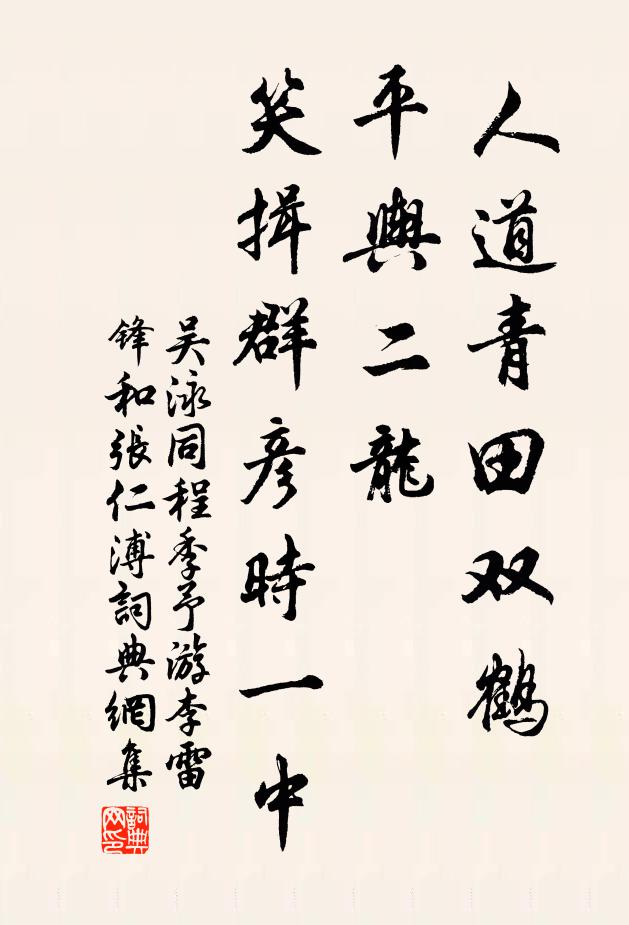 人道青田双鹤
平輿二龍
笑揖群彦時一中
吴泳同程季予游李雷
鋒和張仁溥詞典網集
詞典網印